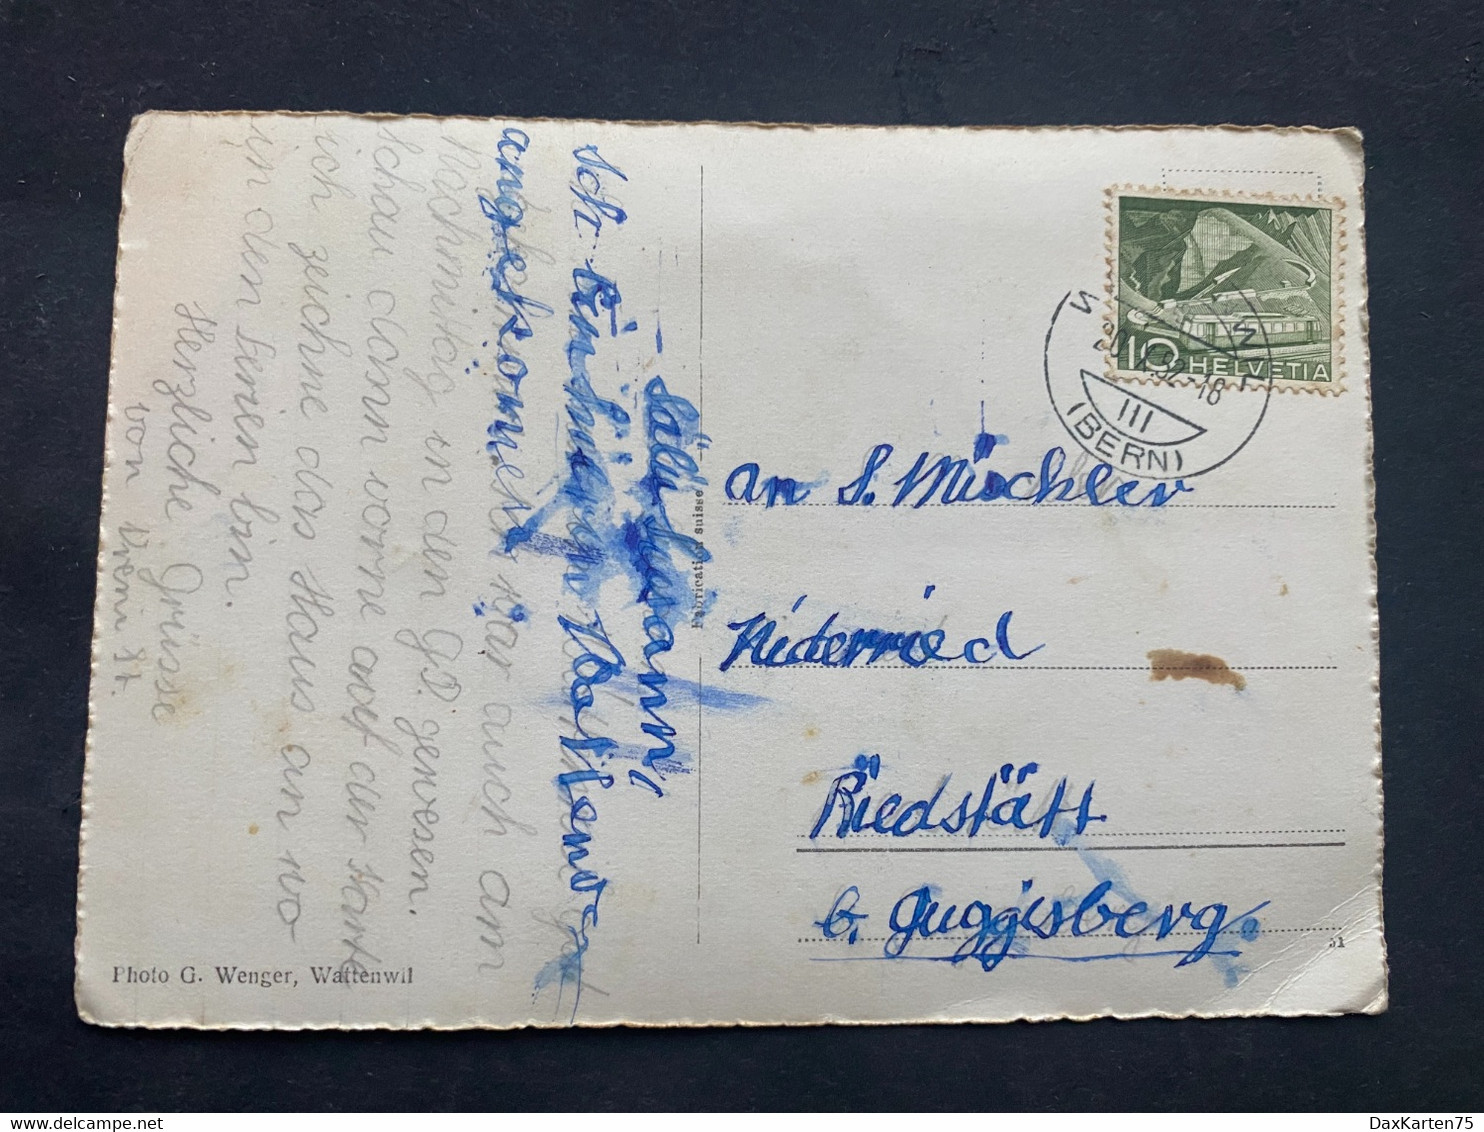 Sali Susanni
Ich bin
angekommen war auch am
Nachmittag in der gewesen.
Schau dann vorne auf der Karte
ich zeichne das Haus an wo
in dem bin.
Herzliche Grüsse
von
Photo G. Wenger, Wattenwil
Fabrication suisse
10 HELVETIA
III
(BERN)
an S. Mischler
Niderried
Riedstätt
b. Guggisberg.
51
DaxKarten75